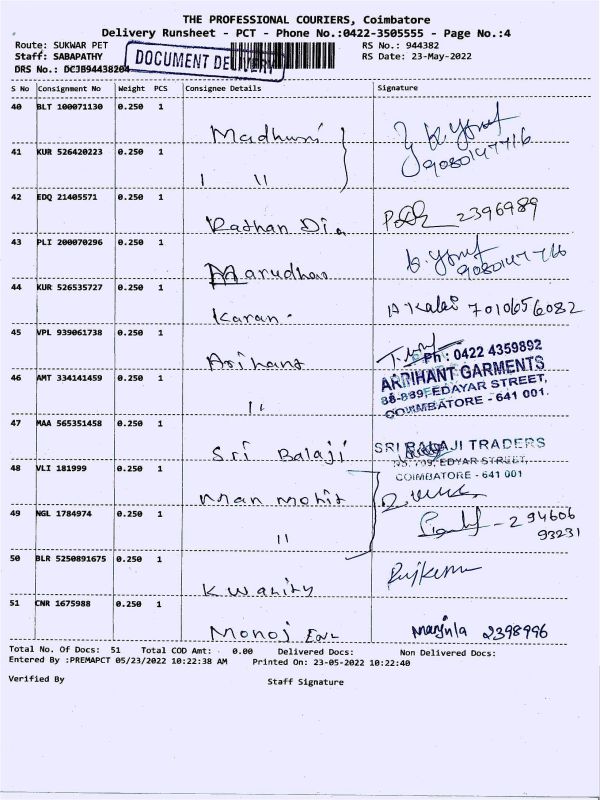 THE PROFESSIONAL COURIERS, Coimbatore
Delivery Runsheet - PCT - Phone No.:0422-3505555 - Page No.:4
Route: SUKWAR PET RS No.: 944382
Staff: SABAPATHY DOCUMENT DELIVERY RS Date: 23-May-2022
DRS No.: DCJB94438204
S No Consignment No Weight PCS Consignee Details Signature
40 BLT 100071130 0.250 1
Madhuni
41 KUR 526420223 0.250 1 9080147716
ı ıı
42 EDQ 21405571 0.250 1
Rathan Dia 2396989
43 PLI 200070296 0.250 1
Marudhar 9080147766
44 KUR 526535727 0.250 1
Karan. A Kalai 7010656082
45 VPL 939061738 0.250 1
Arihant Ph : 0422 4359892
46 AMT 334141459 0.250 1 ARRIHANT GARMENTS
ıı EDAYAR STREET,
COIMBATORE - 641 001.
47 MAA 565351458 0.250 1
Sri Balaji SRI BALAJI TRADERS
48 VLI 181999 0.250 1 EDYAR STREET,
COIMBATORE - 641 001
Man Mohit
49 NGL 1784974 0.250 1 - 2 94606
ıı 93231
50 BLR 5250891675 0.250 1
Kwality Rajkumar
51 CNR 1675988 0.250 1
Monoj Manjula 2398996
Total No. Of Docs: 51 Total COD Amt: 0.00 Delivered Docs: Non Delivered Docs:
Entered By :PREMAPCT 05/23/2022 10:22:38 AM Printed On: 23-05-2022 10:22:40
Verified By Staff Signature